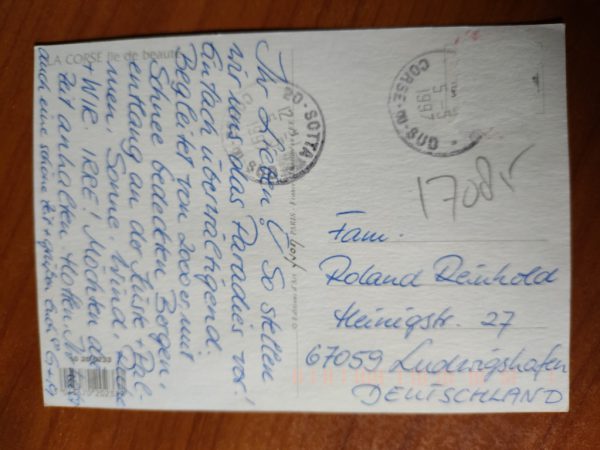 LA CORSE Ile de beauté
Ihr Lieben! So stellen
wir uns das Paradies vor!
Einfach überwältigend:
Begleitet von 2000er mit
Schnee bedeckten Bergen,
entlang an der Küste Pal-
men, Sonne, Wind,
+ WIR. IRRE! Möchten die
Zeit anhalten. Hoffen, Ihr
auch eine schöne Zeit + grüßen Euch
SOTTA
CORSE DU SUD
1997
CORSE DU SUD
5-5
1997
1708r
Fam.
Roland Reinhold
Heinigstr. 27
67059 Ludwigshafen
DEUTSCHLAND